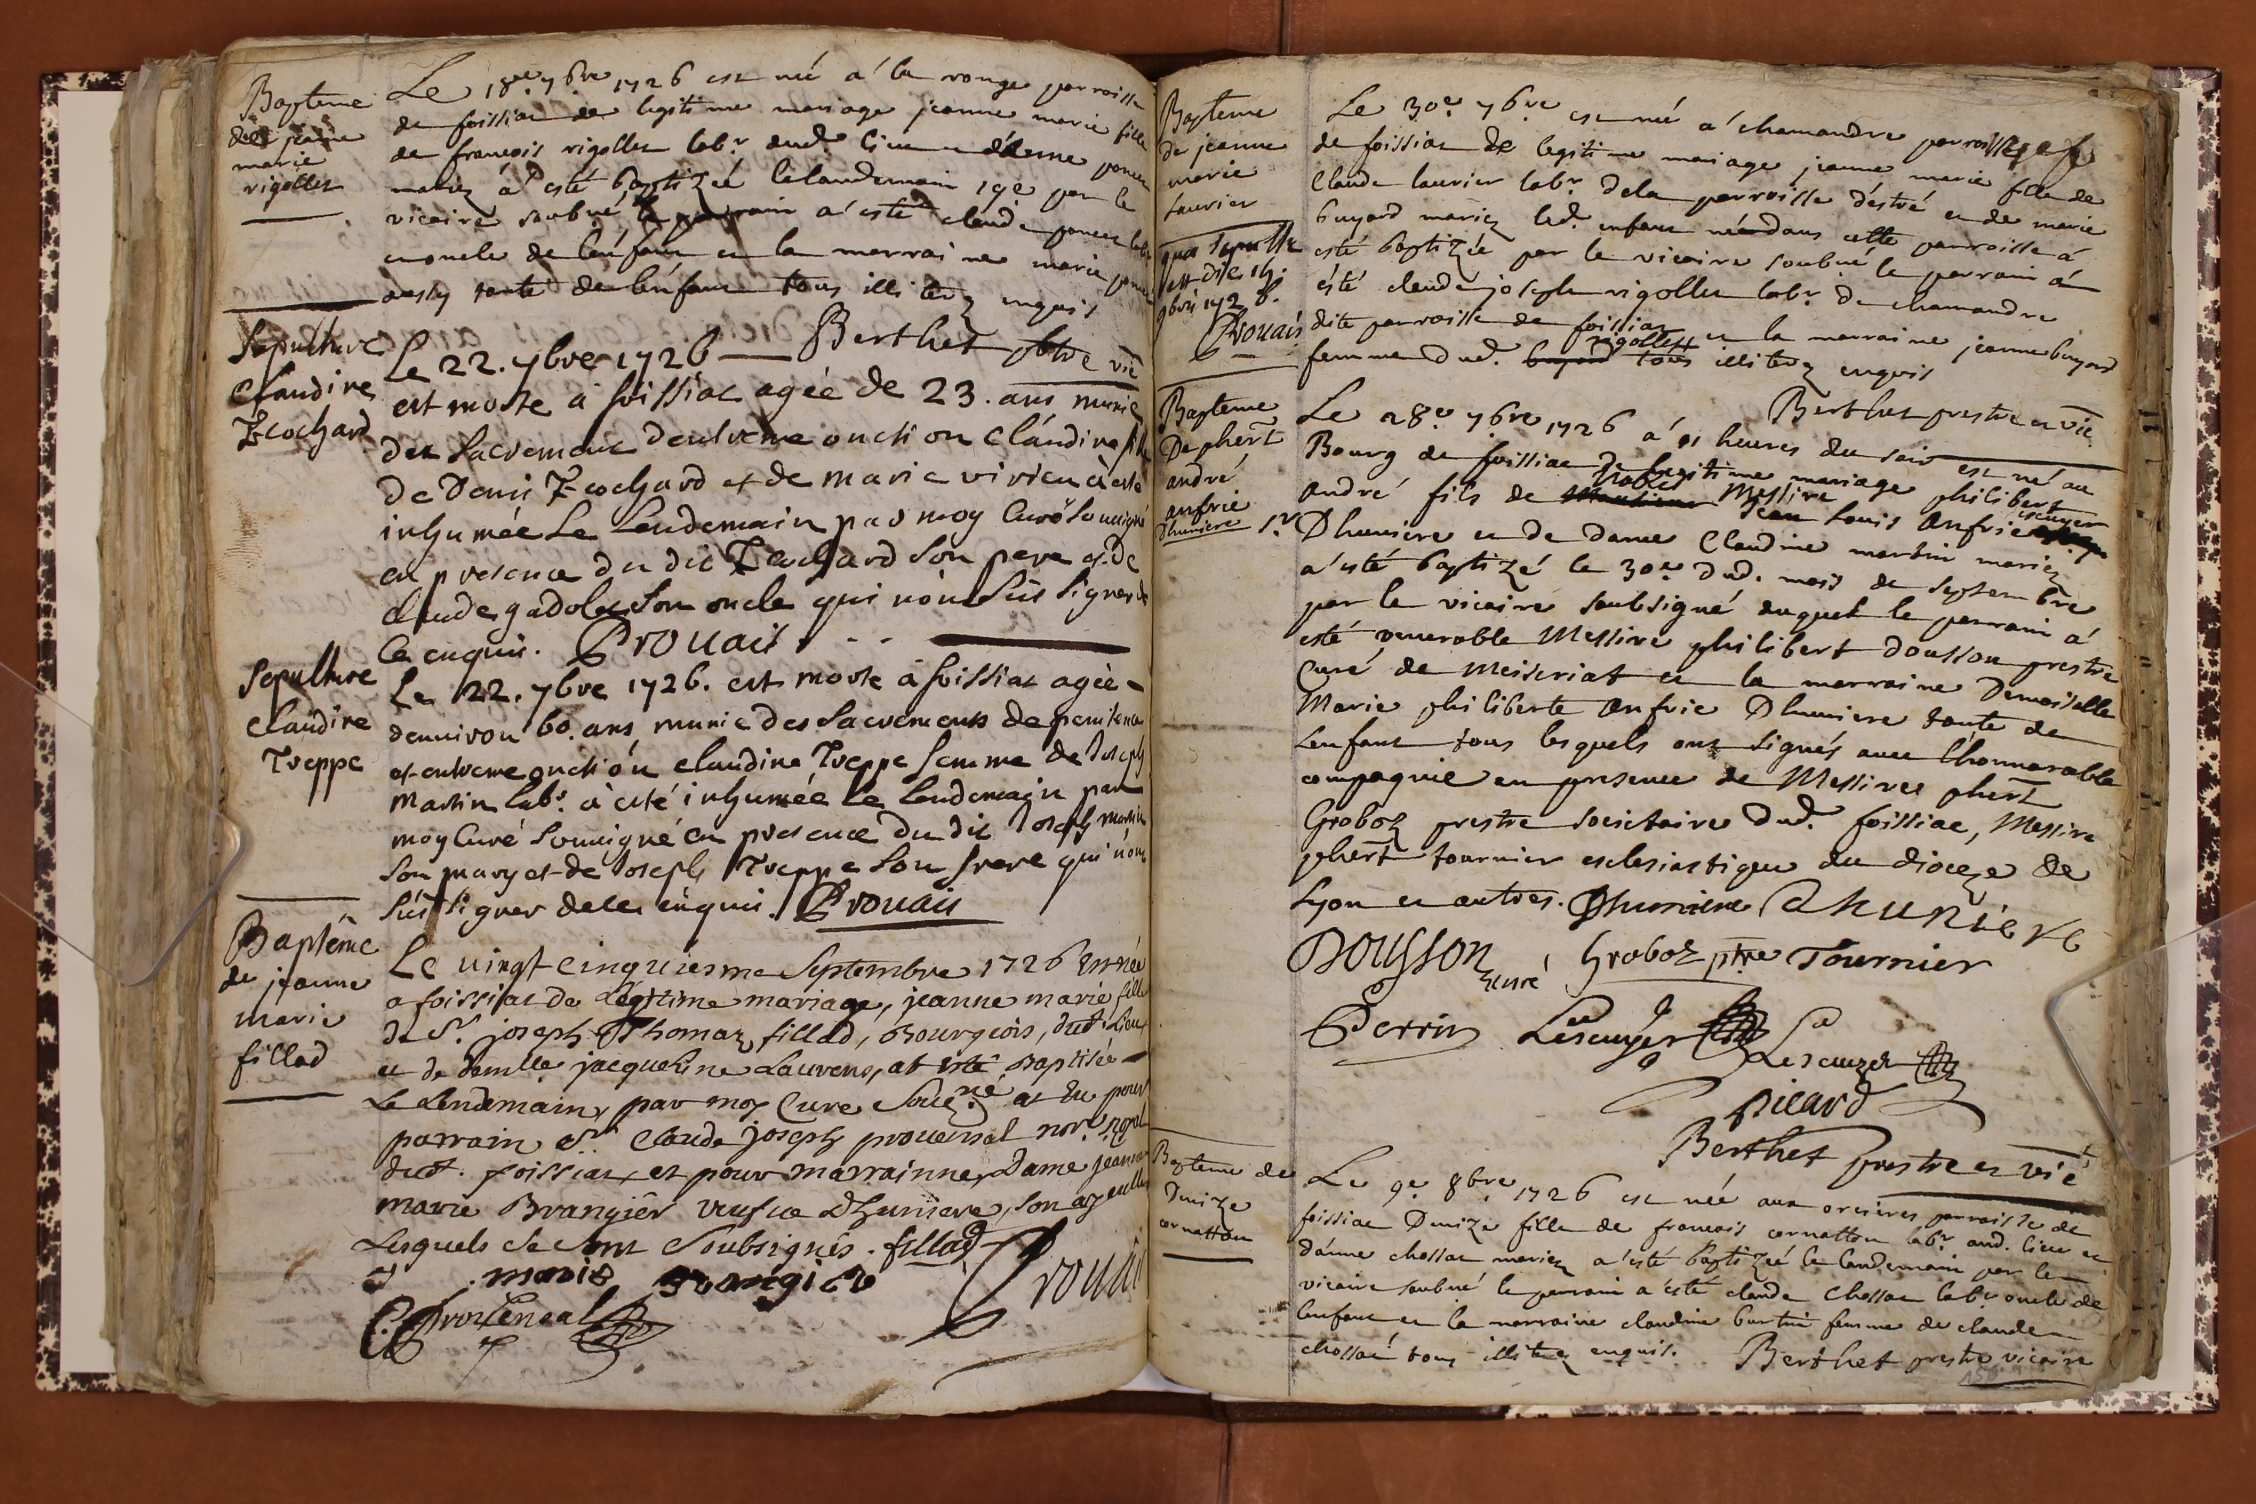 Bapteme
de jeanne
marie
rigollet
Le 18e. 7bre 1726 est né a la rouge parroisse
de foissiat de legitime mariage jeanne marie fille
de francois rigollet labr. dud. lieu et de
mariez á esté baptizéé le landemain 19e par le
vicaire soubné le parrain a esté claude poncet
oncle de lénfant et la marraine marie
aussy tante de lénfant tous illiterez enquis
Berthet pbtre vic
Sepulture
Claudine
Le 22. 7bre 1726
est morte a foissiat agéé de 23. ans munie
des Sacremens dextreme onction Claudine fille
de Denis et de marie vivien à esté
inhumée le Lendemain par moy Curé soussigné
en presence du dit son pere et de
claude gadolet son oncle qui nont sçû signer de
ce enquis. Prouais
Sepulture
Claudine
Treppe
Le 22. 7bre 1726. est morte à foissiat agéé
denviron 60. ans munie des Sacremens de penitence
et extreme onction claudine Treppe femme de Joseph
Martin labr. à esté inhumée le lendemain par
moy Curé soussigné en presence du dit Joseph martin
son mary et de Joseph Treppe son frere qui nont
sçû signer de ce enquis. Prouais
Baptême
de jeanne
marie
fillod
Le vingt cinquiesme Septembre 1726 est née
a foissiat de Légitime mariage, jeanne marie fille
de Sr. joseph Thomaz fillod, Bourgeois, dud. Lieu
et de demlle jacqueline Laurens, at esté Baptisée
Le Lendemain par moy Curé Souzné at eu pour
parrain Sr. Claude joseph provensal nore. royal
dud. foissiat et pour marrainne Dame jeanne
marie Brangier veufue Dhuniere, son ayeulle
Lesquels se sont Soubsignés. fillod
marie Brangier Prouais
Prouenceal
Bapteme
de jeanne
marie
Laurier
9bre 1728.
Prouais
Le 30e. 7bre est né a chamandre parroisse
de foissiat de legitime mariage jeanne marie fille de
Claude laurier labr. dela parroisse déstré et de marie
buyard mariez led. enfant né dans cette parroisse á
esté baptizée par le vicaire soubné le parrain á
ésté claude joseph rigollet labr. de chamandre
dite parroisse de foissiat et la marraine jeanne buyard
femme dud. rigollet tous illiterez enquis
Berthet prestre et vic
Bapteme
De phert
andré
anfrie
Dhuniere
Le 28e. 7bre 1726 á 11 heures du soir est né au
Bourg de foissiac de legitime mariage philibert
André fils de noble Messire Jean Louis Anfrie escuyer
Sr. Dhuniere et de dame Claudine martin mariez
a esté baptizé le 30e dud. mois de septembre
par le vicaire soubsigné duquel le parrain á
esté venerable Messire philibert Dousson prestre
Curé de Meiseriat et la marraine Demoiselle
Marie philiberte Anfrie Dhuniere tante de
Lenfant tous lesquels ont signés avec Lhonnorable
compagnie en presence de Messires phert
Groboz prestre societaire dud. foissiac, Messire
phert tournier esclesiastique du dioceze de
Lyon et autres. Dhuniere Dhuniere
Dousson curé Groboz ptre Tournier
Perrin Lescuyer
Lescuyer
picard
Berthet prestre et vic
Bapteme de
Denize
cornatton
Le 9e. 8bre. 1726 est néé aux orcieres parroisse de
foissiac Denize fille de francois cornatton labr. aud. lieu et
chossat mariez a esté baptizéé le landemain par le
vicaire soubné le parrain a esté claude Chossat labr. oncle de
lenfant et la marraine claudine burtin femme de claude
chossat tous illiterez enquis. Berthet prestre vicaire